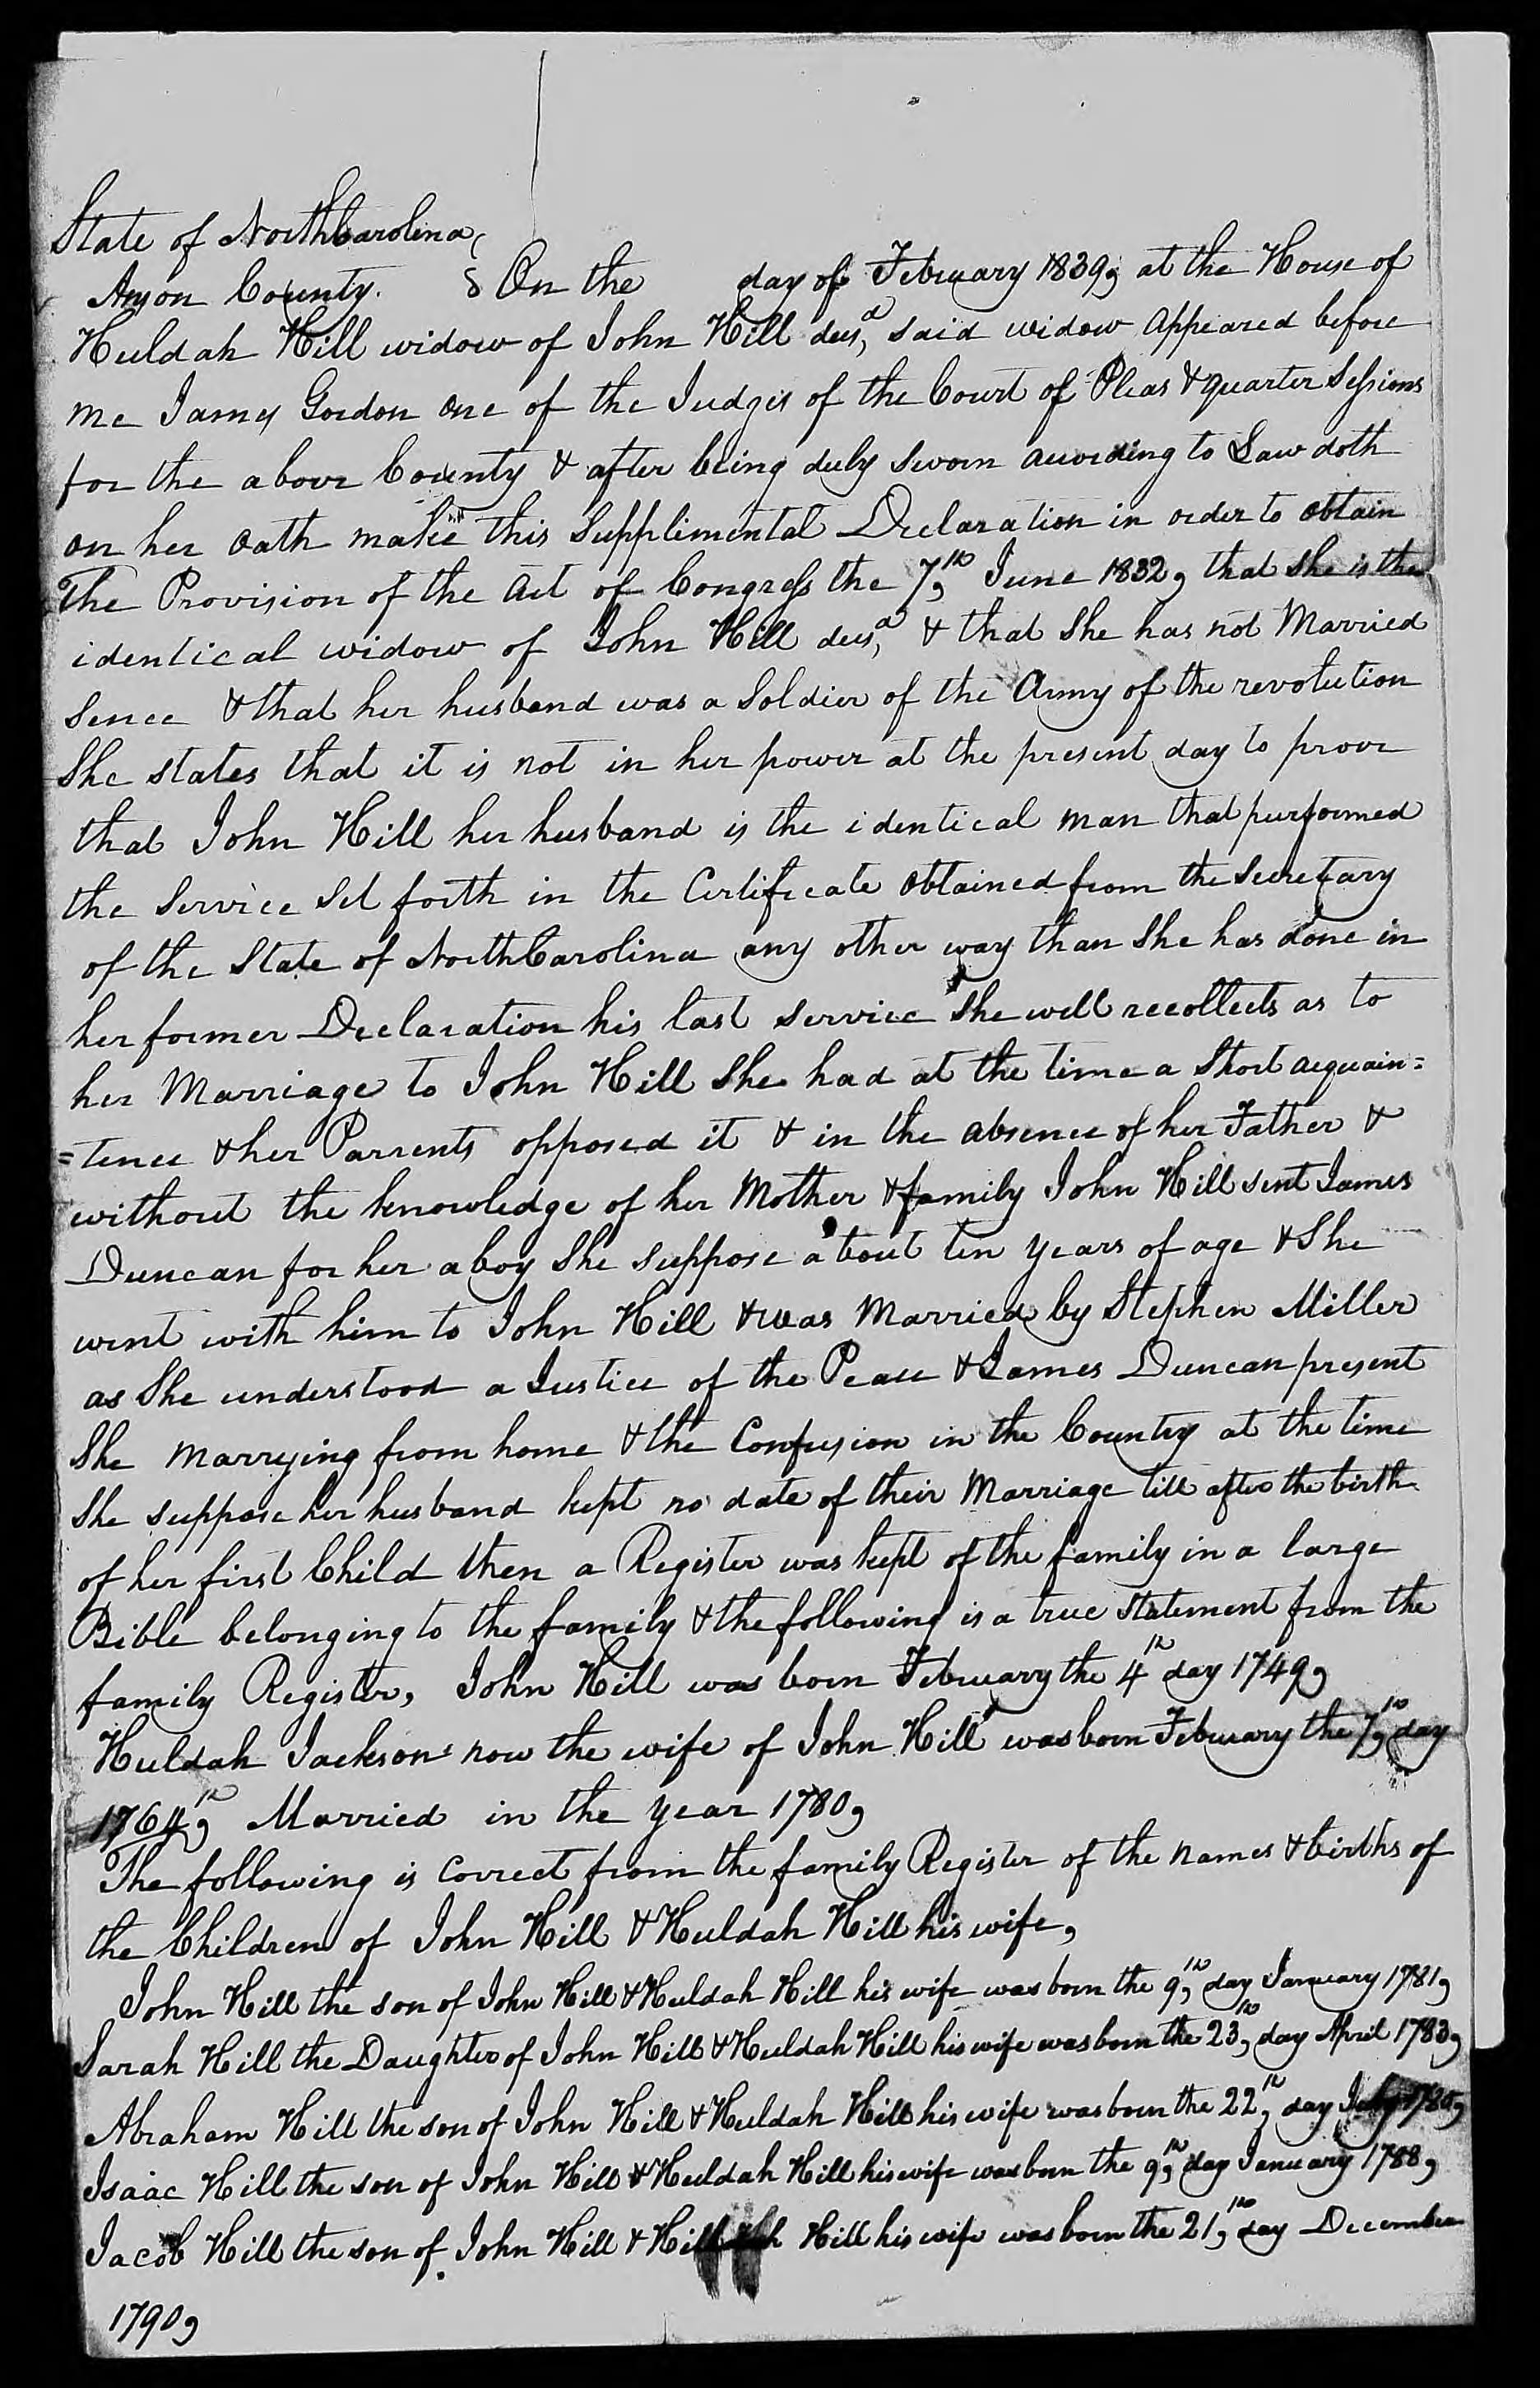 State of North Carolina
Anson County. On the day of February 1839, at the House of
Huldah Hill widow of John Hill decd, said widow appeared before
me James Gordon one of the Judges of the Court of Pleas & quarter Sessions
for the above County & after being duly sworn according to Law doth
on her oath make this Supplimental Declaration in order to obtain
The Provision of the Act of Congress the 7,th June 1832, that she is the
identical widow of John Hill decd, & that she has not Married
Sence & that her husband was a Soldier of the Army of the revolution
She states that it is not in her power at the present day to prove
that John Hill her husband is the identical man that purformed
the Service Set forth in the Certificate obtained from the Secretary
of the State of North Carolina any other way than She has done in
her former Declaration his last service She well recollects as to
her Marriage to John Hill She had at the time a Short acquain=
=tence & her Parrents opposed it & in the absence of her Father &
without the knowledge of her Mother & family John Hill sent James
Duncan for her a boy She suppose about ten years of age & She
went with him to John Hill & was Married by Stephen Miller
as She understood a Justice of the Peace & James Duncan present
She marrying from home & the Confusion in the Country at the time
She suppose her husband kept no date of their Marriage till after the birth
of her first Child then a Register was kept of the family in a large
Bible belonging to the family & the following is a true statement from the
family Register, John Hill was born February the 4th day 1749,
Huldah Jackson now the wife of John Hill was born February the 7,th day
1764,th Married in the year 1780,
The following is correct from the family Register of the names & births of
the Children of John Hill & Huldah Hill his wife,
John Hill the son of John Hill & Huldah Hill his wife was born the 9,th day January 1781,
Sarah Hill the Daughter of John Hill & Huldah Hill his wife was born the 23,th day April 1783,
Abraham Hill the son of John Hill & Huldah Hill his wife was born the 22,th day July 1785,
Isaac Hill the son of John Hill & Huldah Hill his wife was born the 9,th day January 1788,
Jacob Hill the son of John Hill & Hill his wife was born the 21,th day December
1790,